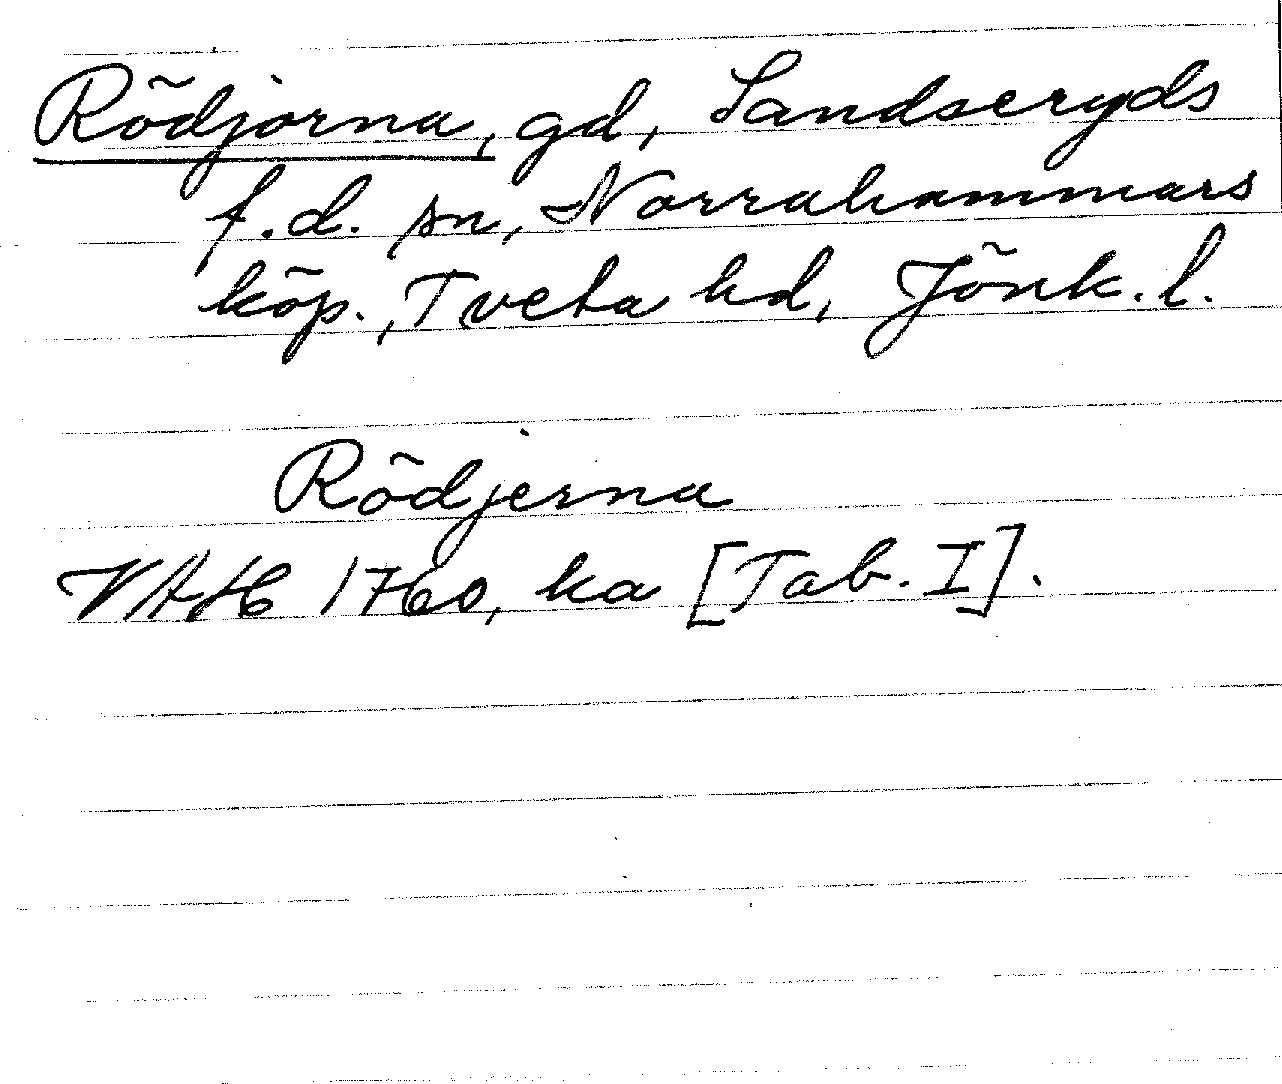 Rödjorna, gd, Sandseryds
f.d. sn, Norrahammars
köp., Tveta hd, Jönk. l.
Rödjerna
VAH 1760, ka [Tab. I].